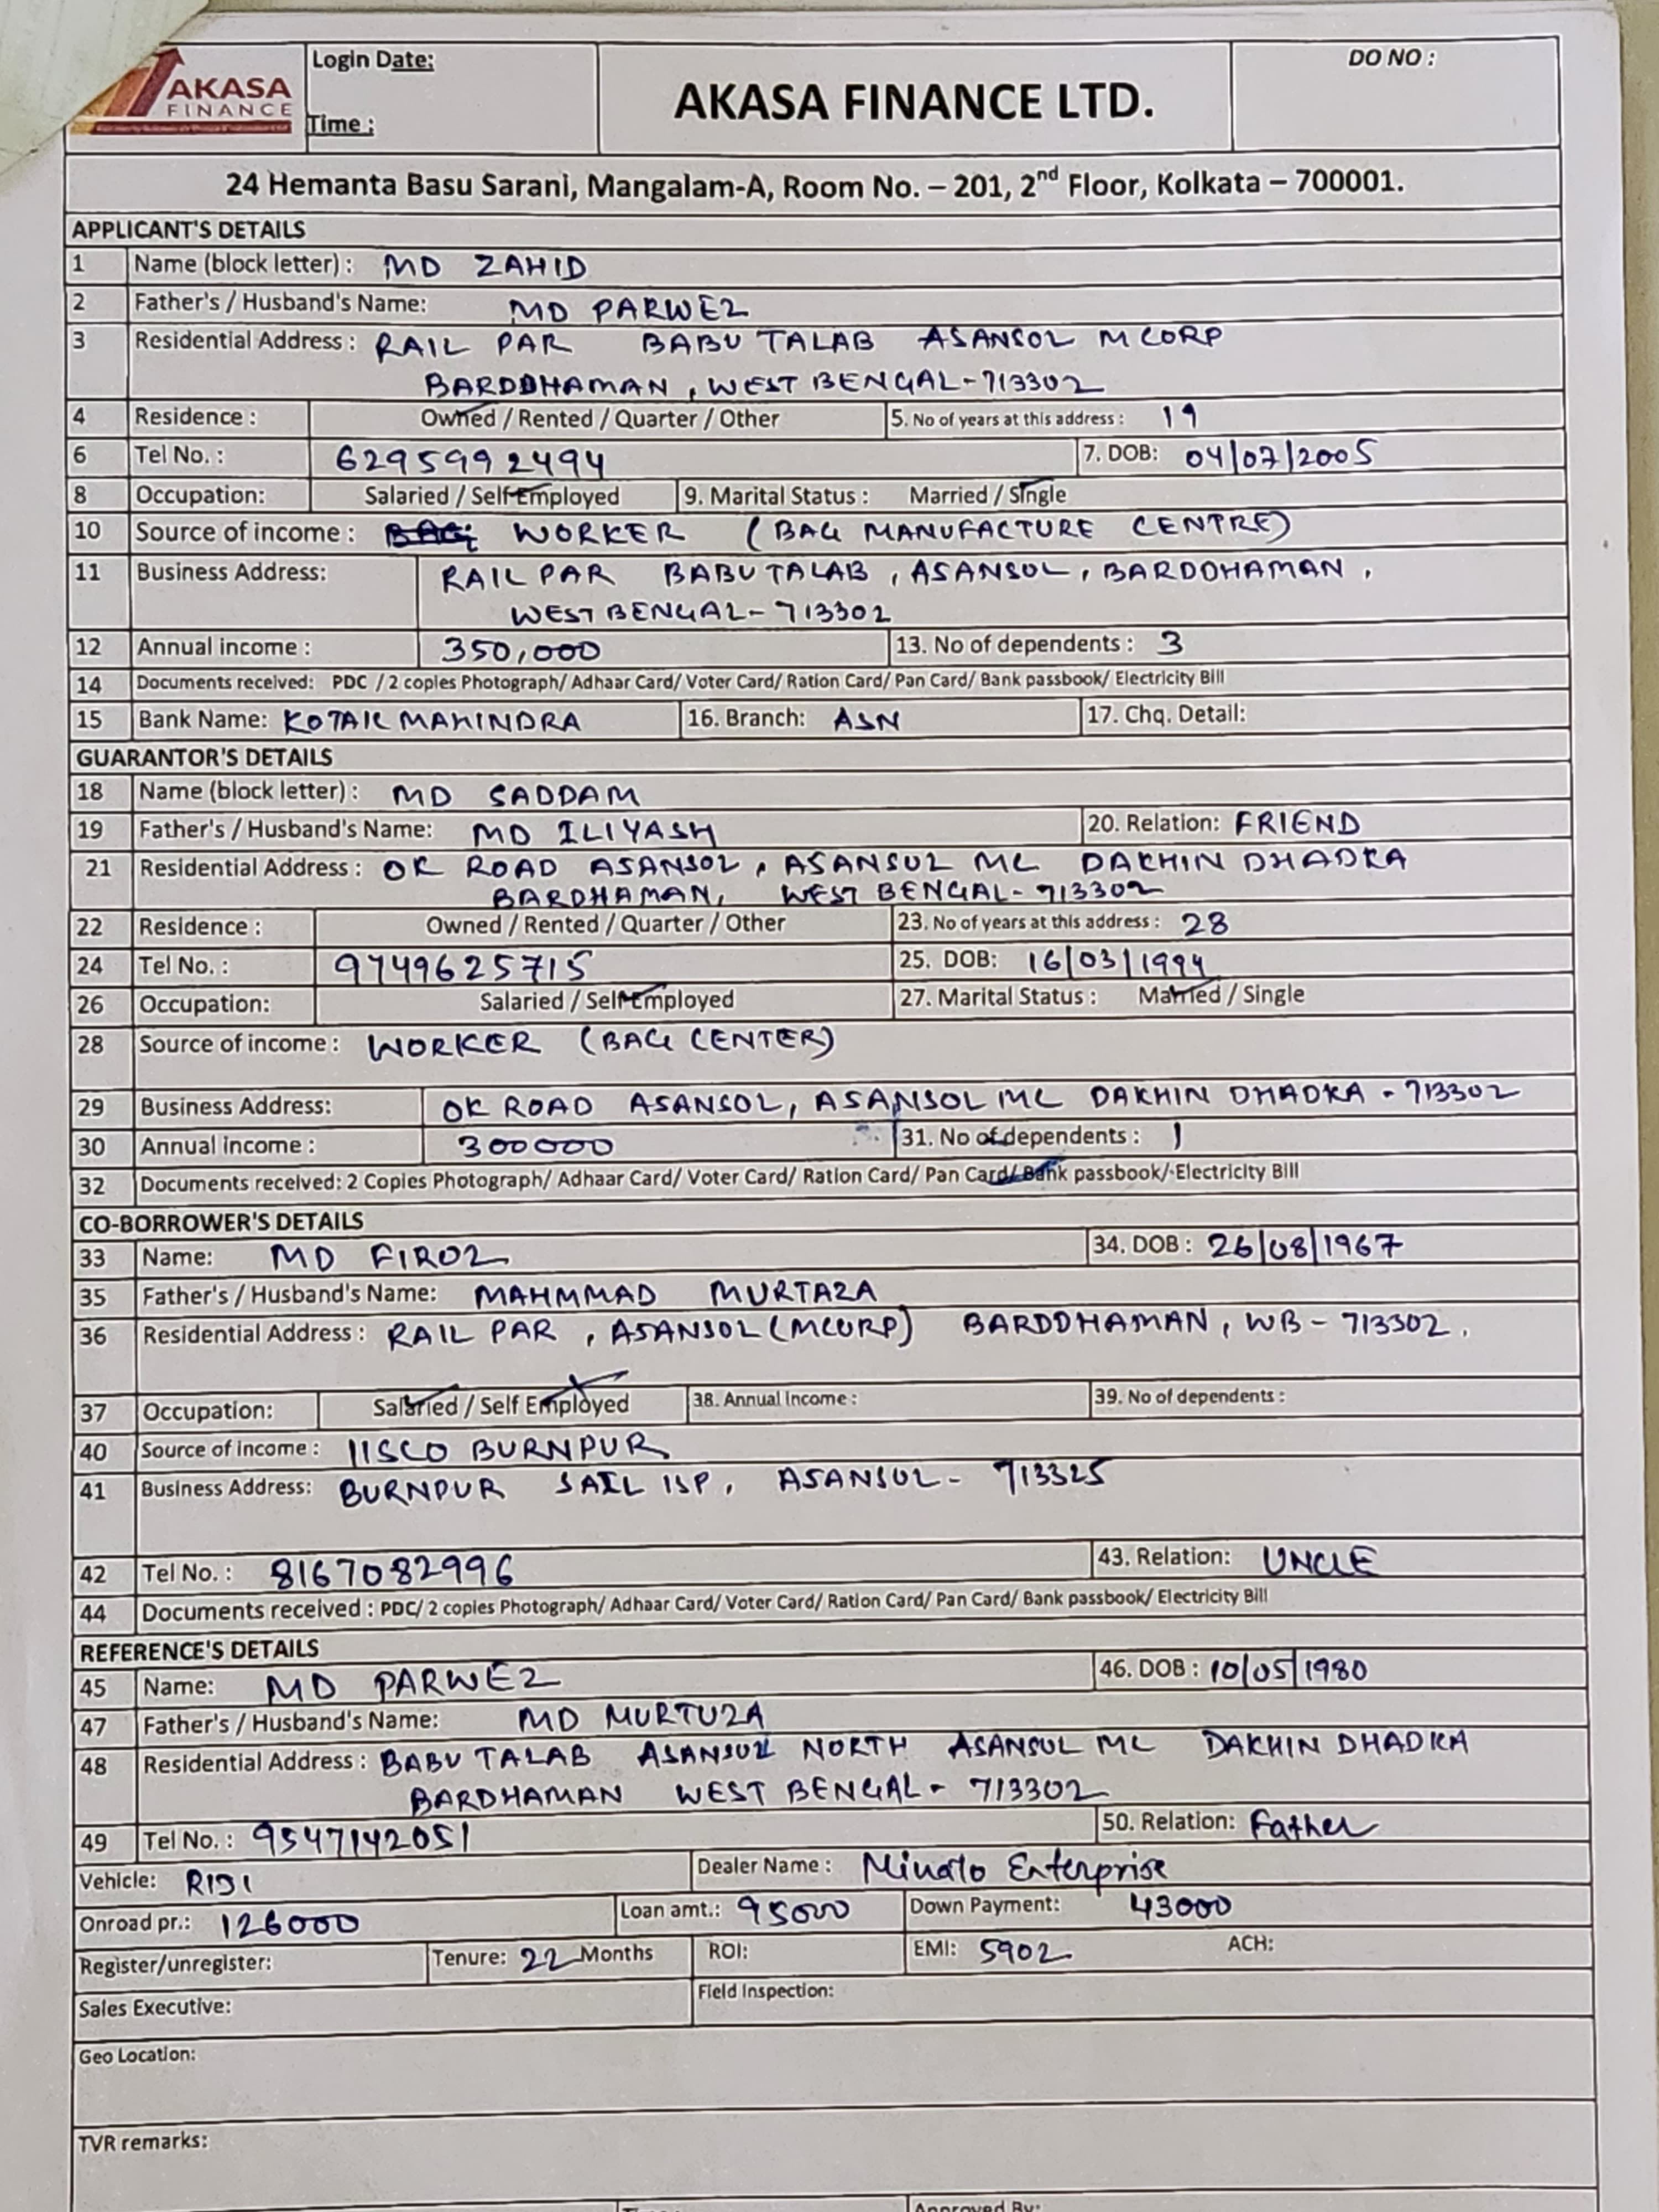 AKASA
FINANCE
Login Date:
Time :
AKASA FINANCE LTD.
DO NO :
24 Hemanta Basu Sarani, Mangalam-A, Room No. – 201, 2nd Floor, Kolkata – 700001.
APPLICANT'S DETAILS
1 Name (block letter) : MD ZAHID
2 Father's / Husband's Name: MD PARWEZ
3 Residential Address : RAIL PAR BABU TALAB ASANSOL M CORP
BARDDHAMAN, WEST BENGAL-713302
4 Residence : Owned / Rented / Quarter / Other 5. No of years at this address : 19
6 Tel No. : 6295992494 7. DOB: 04/07/2005
8 Occupation: Salaried / Self Employed 9. Marital Status : Married / Single
10 Source of income : WORKER (BAG MANUFACTURE CENTRE)
11 Business Address: RAIL PAR BABU TALAB, ASANSOL, BARDDHAMAN,
WEST BENGAL-713302
12 Annual income : 350,000 13. No of dependents : 3
14 Documents received: PDC / 2 copies Photograph/ Adhaar Card/ Voter Card/ Ration Card/ Pan Card/ Bank passbook/ Electricity Bill
15 Bank Name: KOTAK MAHINDRA 16. Branch: ASN 17. Chq. Detail:
GUARANTOR'S DETAILS
18 Name (block letter) : MD SADDAM
19 Father's / Husband's Name: MD ILIYASH 20. Relation: FRIEND
21 Residential Address : OK ROAD ASANSOL, ASANSOL MC DAKHIN DHADKA
BARDHAMAN, WEST BENGAL-713302
22 Residence : Owned / Rented / Quarter / Other 23. No of years at this address : 28
24 Tel No. : 9749625715 25. DOB: 16/03/1994
26 Occupation: Salaried / Self Employed 27. Marital Status : Married / Single
28 Source of income : WORKER (BAG CENTER)
29 Business Address: OK ROAD ASANSOL, ASANSOL MC DAKHIN DHADKA - 713302
30 Annual income : 300000 31. No of dependents : 1
32 Documents received: 2 Copies Photograph/ Adhaar Card/ Voter Card/ Ration Card/ Pan Card/ Bank passbook/ Electricity Bill
CO-BORROWER'S DETAILS
33 Name: MD FIROZ 34. DOB : 26/08/1967
35 Father's / Husband's Name: MAHMMAD MURTAZA
36 Residential Address : RAIL PAR, ASANSOL (MCORP) BARDDHAMAN, WB - 713302.
37 Occupation: Salaried / Self Employed 38. Annual Income : 39. No of dependents :
40 Source of income : IISCO BURNPUR
41 Business Address: BURNPUR SAIL ISP, ASANSOL - 713325
42 Tel No. : 8167082996 43. Relation: UNCLE
44 Documents received : PDC/ 2 copies Photograph/ Adhaar Card/ Voter Card/ Ration Card/ Pan Card/ Bank passbook/ Electricity Bill
REFERENCE'S DETAILS
45 Name: MD PARWEZ 46. DOB : 10/05/1980
47 Father's / Husband's Name: MD MURTUZA
48 Residential Address : BABU TALAB ASANSOL NORTH ASANSOL MC DAKHIN DHADKA
BARDHAMAN WEST BENGAL - 713302
49 Tel No. : 9547142051 50. Relation: Father
Vehicle: Dealer Name : Enterprise
Onroad pr.: 126000 Loan amt.: 95000 Down Payment: 43000
Register/unregister: Tenure: 22 Months ROI: EMI: 5902 ACH:
Sales Executive: Field Inspection:
Geo Location:
TVR remarks:
Approved By: